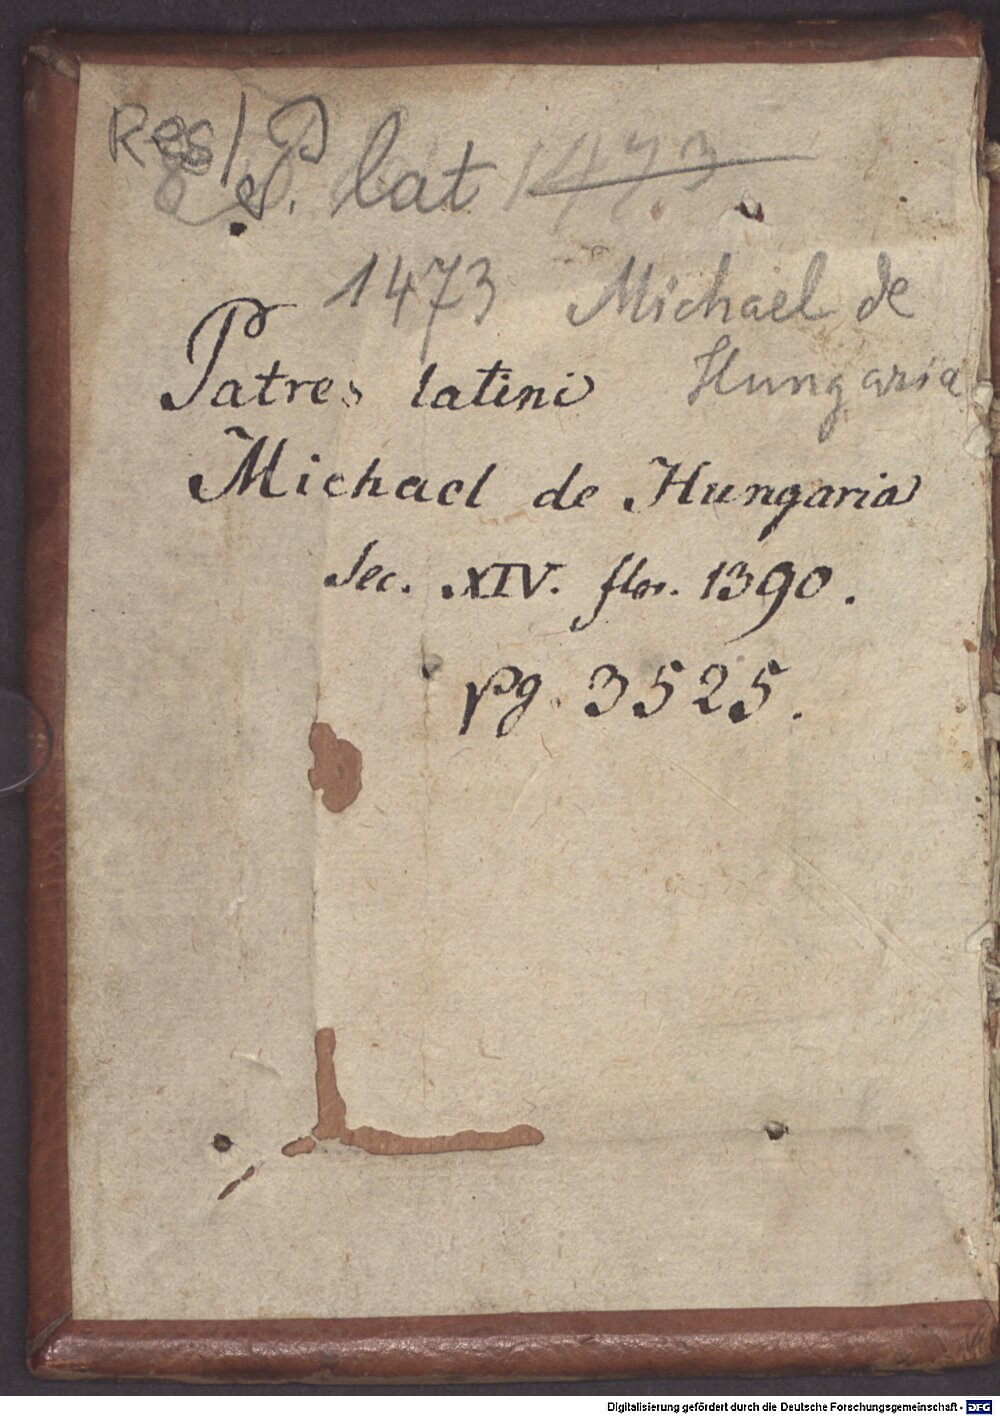 Res/ P.
lat 1473
1473 Michael de
Hungaria
Patres latini
Michael de Hungaria
Sec. XIV. flor. 1390.
pg. 3525.
Digitalisierung gefördert durch die Deutsche Forschungsgemeinschaft - DFG